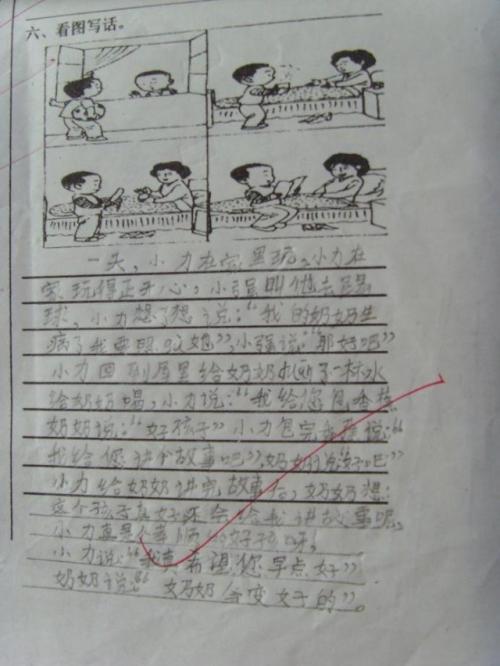 六、看图写话。
一天，小力在家里玩。小力在
家玩得正开心，小强叫他去踢
球，小力想了想说：“我的奶奶生
病了我要照顾她”，小强说“那好吧”
小力回到屋里给奶奶 了一杯水
给奶奶喝，小力说：“我给您包香蕉
奶奶说：“好孩子”小力包完 说：“
我给您讲个故事吧”，奶奶说“好吧”
小力给奶奶讲完故事后，奶奶想：
这个孩子真好还会给我讲故事呢，
小力真是 的好孩子呀，
小力说：“我 希望您早点好”
奶奶说：“奶奶会变好的”。